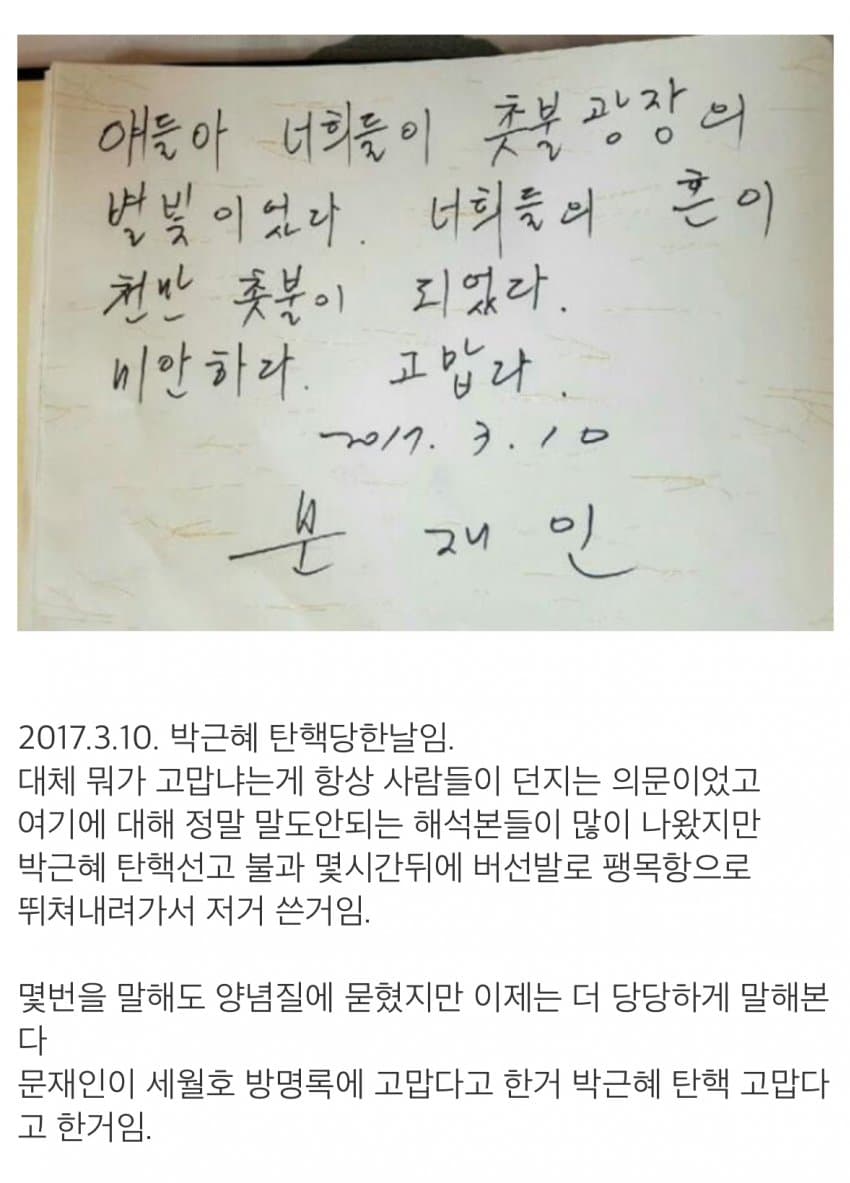 얘들아 너희들이 촛불광장의
별빛이었다. 너희들의 혼이
천만 촛불이 되었다.
미안하다. 고맙다.
2017. 3. 10
문 재 인
2017.3.10. 박근혜 탄핵당한날임.
대체 뭐가 고맙냐는게 항상 사람들이 던지는 의문이었고
여기에 대해 정말 말도안되는 해석본들이 많이 나왔지만
박근혜 탄핵선고 불과 몇시간뒤에 버선발로 팽목항으로
뛰쳐내려가서 저거 쓴거임.
몇번을 말해도 양념질에 묻혔지만 이제는 더 당당하게 말해본
다
문재인이 세월호 방명록에 고맙다고 한거 박근혜 탄핵 고맙다
고 한거임.